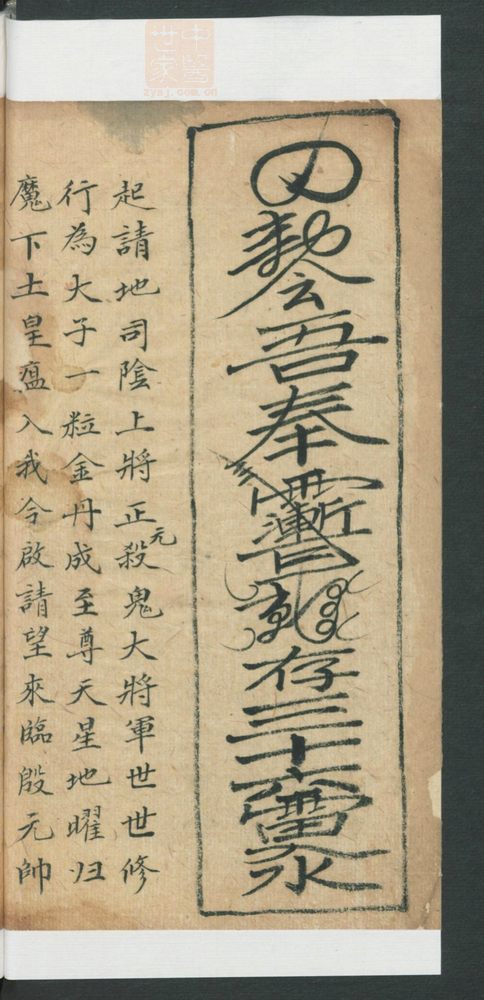 中醫世家
zysj.com.cn
吾奉
存三十六
水
起請地司陰上將正殺鬼大將軍世世修
元
行為大子一粒金丹成至尊天星地曜归
魔下土皇瘟入我今啟請望來臨殷元帥